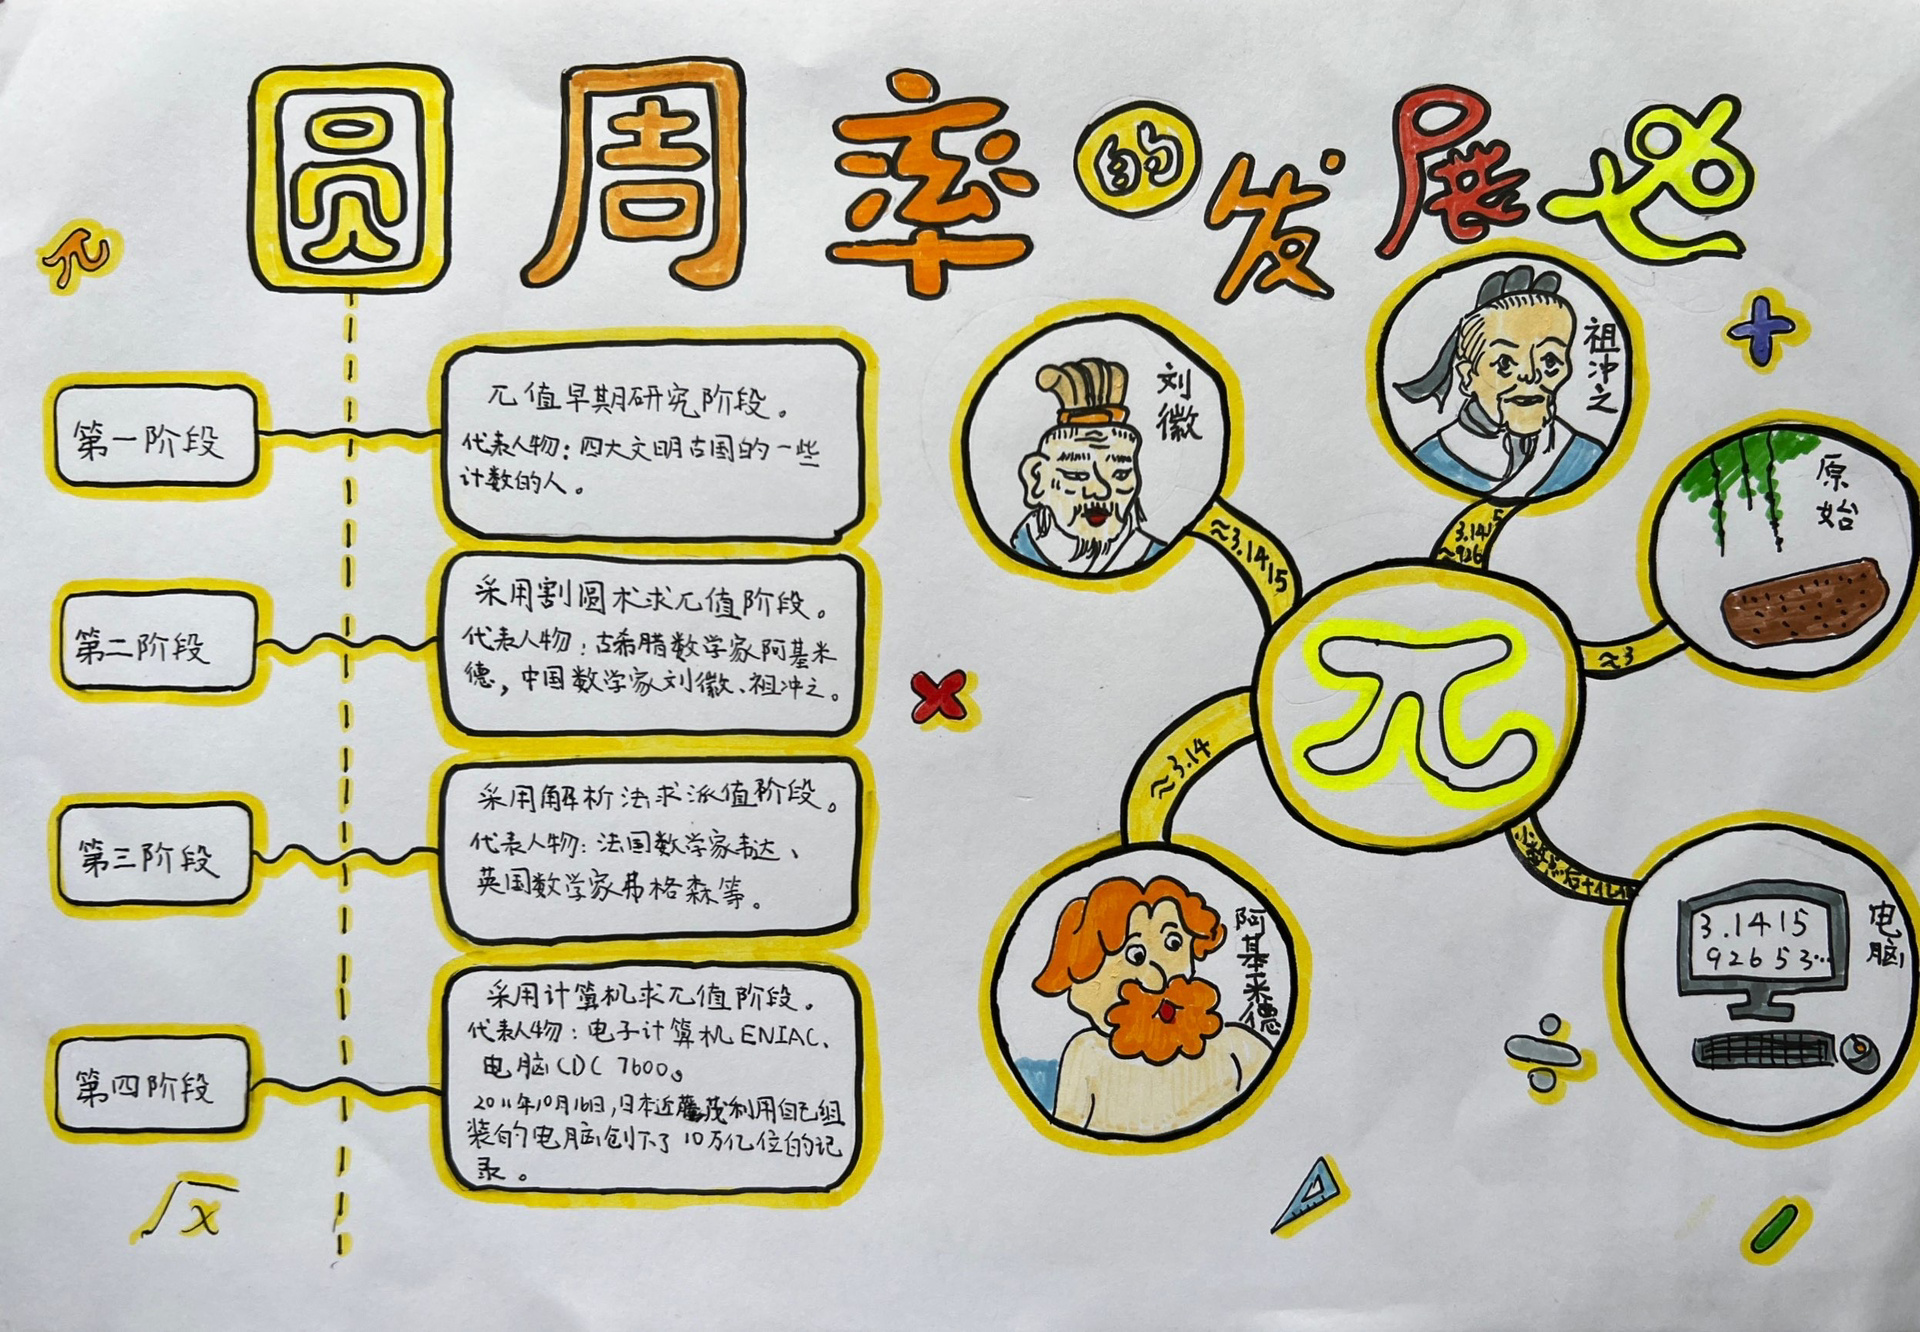 圆周率的发展史
π
第一阶段
π值早期研究阶段。
代表人物：四大文明古国的一些
计数的人。
第二阶段
采用割圆术求π值阶段。
代表人物：古希腊数学家阿基米
德，中国数学家刘徽、祖冲之。
第三阶段
采用解析法求派值阶段。
代表人物：法国数学家韦达、
英国数学家弗格森等。
第四阶段
采用计算机求π值阶段。
代表人物：电子计算机ENIAC、
电脑CDC 7600。
2011年10月16日,日本近藤茂利用自己组
装的电脑创下了10万亿位的记
录。
√x
刘徽
≈3.1415
祖冲之
3.1415
≈926
原始
≈3
π
≈3.14
阿基米德
小数点后十亿
电脑
3.1415
92653...